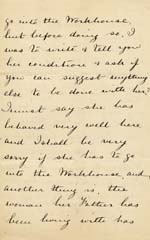 go into the Workhouse,
but before doing so, I
was to write & tell you
her condition & ask if
you can suggest anything
else to be done with her?
I must say she has
behaved very well here
and I shall be very
sorry if she has to go
into the Workhouse, and
another thing is, the
woman her Father has
been living with has